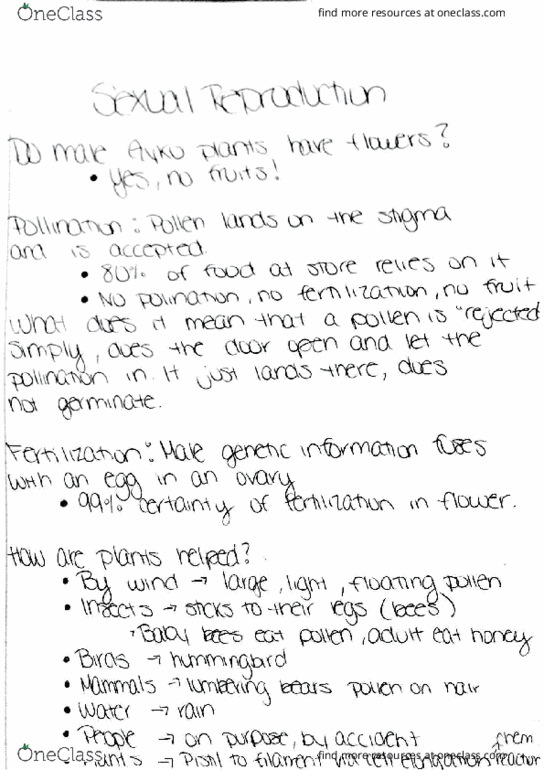 OneClass
find more resources at oneclass.com
Sexual Reproduction
Do male plants have flowers?
• Yes, no fruits!
Pollination: Pollen lands on the stigma
and is accepted.
• 80% of food at store relies on it
• No polination, no fertilization, no fruit
What does it mean that a pollen is "rejected
Simply, does the door open and let the
pollination in. It just lands there, does
not germinate.
Fertilization: Male genetic information fuses
with an egg in an ovary
• 99% certainty of fertilization in flower.
How are plants helped?
• By wind → large, light, floating pollen
• Insects → sticks to their legs (bees)
Baby bees eat pollen, adult eat honey
• Birds → hummingbird
• Mammals → lumbering bears pollen on hair
• Water → rain
• People → on purpose, by accident
OneClass
find more resources at oneclass.com